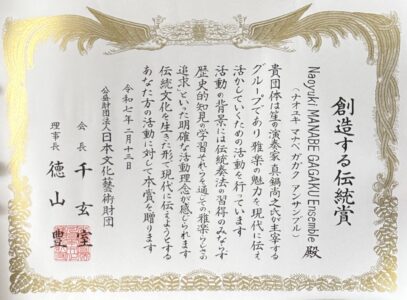 創造する伝統賞
Naoyuki MANABE GAGAKU Ensemble 殿
(ナオユキ マナベ ガガク アンサンブル)
貴団体は笙の演奏家 真鍋尚之氏が主宰する
グループであり 雅楽の魅力を現代に伝え
活かしていくための活動を行っています
活動の背景には伝統奏法の習得のみならず
歴史的知見の学習 それらを通じその雅楽らしさの
追求といった明確な活動理念が感じられます
伝統文化を生きた形で現代に伝えようとする
あなた方の活動に対して本賞を贈ります
令和七年二月十三日
公益財団法人日本文化藝術財団
会長 千 玄室
理事長 徳山 豊